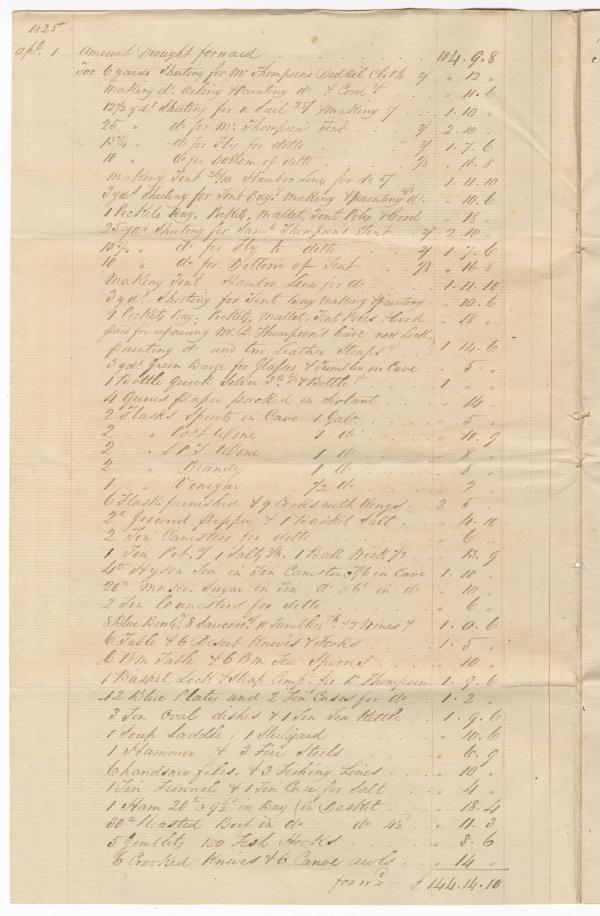 1825
Apl. 1 Amount Brought forward 104. 9. 8
For 6 yards Sheting for Mr Thompson's Cloth 2/ " 12 "
Making do. Oiling & painting do & Cord " 11. 6
12 1/2 yds. Sheting for a Sail 25/ Making 5/ 1. 10 "
25 " do for Mr. Thompson's Tent 2/ 2. 10 "
13 3/4 " do for Fly for ditto 2/ 1. 7. 6
10 " do for Bottom of ditto 1/8 " 16. 8
Making Tent Hambro Lines for do 5/ 1. 11. 10
3 yds. Sheting for Tent Bag, Making & painting do. " 10. 6
1 Pickets Bag, Pickets, Mallet, Tent Poles & Cord " 18 "
25 yds Sheting for Saml. Thompson's Tent 2/ 2. 10 "
13 3/4 " do for Fly to ditto 2/ 1. 7. 6
10 " do for Bottom of Tent 1/8 " 16. 8
Making Tent Hambro Lines for do 1. 11. 10
3 yds. Sheting for Tent Bag Making & painting " 10. 6
1 Pickets Bag, Pickets, Mallet, Tent Poles & Cord " 18 "
paid for repairing Mr. D. Thompson's Cave, new Lock,
painting do and two Leather Straps 1. 14. 6
3 yds. Green Baize for Glasses & Tumblers in Cave " 5. "
1 Bottle quick Silver & Bottle 1. " "
4 Quires Paper packed in " 14
2 Flasks Spirits in Cave 1 Galn. " 5 "
2 " Port Wine 1 do " 10. 9
2 " L P T Wine 1 do " 8 "
2 " Brandy 1 do " 8 "
1 " Vinegar 1/2 do " 2 "
6 Flasks furnished & 9 Corks with Rings 2 5 "
Ground Pepper & 1 Basket Salt " 4. 10
2 Tin Canesters for ditto " 6 "
1 Tea Pot 1 Salt 1 Ball Wick " 13. 9
4 lb Hyson Tea in Tin Canester in Cave 1. 10 "
20 lb Musco. Sugar in Tin do in do " 10 "
2 Tin Counesters for ditto " 6 "
8 Blue 8 Saucers 10 Tumblers & 2 Wines 1. 0. 6
6 Table & 6 Desert Knives & Forks 1. 5 "
6 B.M Table & 6 B.M Tea Spoons " 10 "
1 Basket Lock & Strap Comp. for D Thompson 1. 8. 6
12 Blue Plates and 2 Tin Cases for do 1. 2 "
3 Tin Oval dishes & 1 Tin Tea Kettle 1. 9. 6
1 Soup Laddle, 1 Steelyard " 10. 6
1 Hammer & 3 Fire Steels " 6. 9
6 handsaw files. & 3 Fishing Lines " 10 "
1 Tin Funnel & 1 Tin Case for Salt " 4 "
1 Ham 20 lb in Bag (in Basket " 18. 4
30 lb Roasted Beef in do do 4 1/2 " 11. 3
5 Gimblets 100 Fish Hooks " 8. 6
6 Crooked Knives & 6 Canoe awls " 14 "
forwd £144. 14. 10